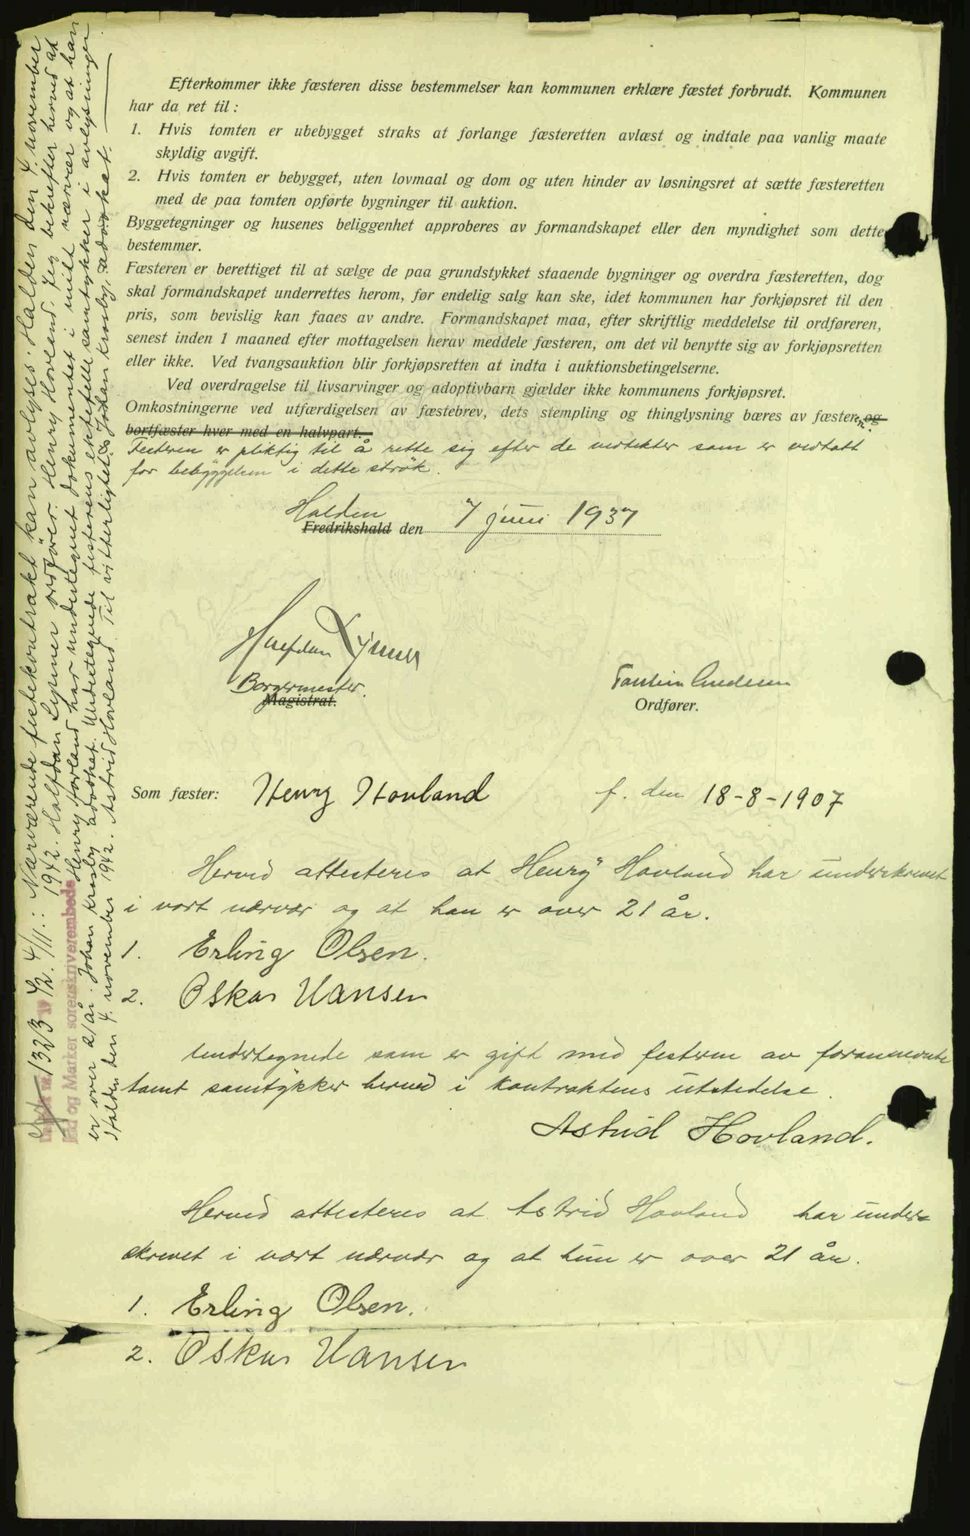 Efterkommer ikke fæsteren disse bestemmelser kan kommunen erklære fæstet forbrudt. Kommunen
har da ret til:
1. Hvis tomten er ubebygget straks at forlange fæsteretten avlæst og indtale paa vanlig maate
skyldig avgift.
2. Hvis tomten er bebygget, uten lovmaal og dom og uten hinder av løsningsret at sætte fæsteretten
med de paa tomten opførte bygninger til auktion.
Byggetegninger og husenes beliggenhet approberes av formandskapet eller den myndighet som dette
bestemmer.
Fæsteren er berettiget til at sælge de paa grundstykket staaende bygninger og overdra fæsteretten, dog
skal formandskapet underrettes herom, før endelig salg kan ske, idet kommunen har forkjøpsret til den
pris, som bevislig kan faaes av andre. Formandskapet maa, efter skriftlig meddelelse til ordføreren,
senest inden 1 maaned efter mottagelsen herav meddele fæsteren, om det vil benytte sig av forkjøpsretten
eller ikke. Ved tvangsauktion blir forkjøpsretten at indta i auktionsbetingelserne.
Ved overdragelse til livsarvinger og adoptivbarn gjælder ikke kommunens forkjøpsret.
Omkostningerne ved utfærdigelsen av fæstebrev, dets stempling og thinglysning bæres av fæsteren og
bortfæster hver med en halvpart.
Festeren er pliktig til å rette sig efter de vedtekter som er vedtatt
for bebyggelsen i dette strøk.
Halden
Fredrikshald den 7 juni 1937
Halfdan Lynner
Borgermester.
Magistrat.
Ordfører.
Som fæster: Henry Hovland f. den 18-8-1907
Herved attesteres at Henry Hovland har underskrevet
i vort nærvær og at han er over 21 år.
1. Erling Olsen.
2. Oskar Hansen
Undertegnede som er gift med festeren av forannevnte
tomt samtykker herved i kontraktens utstedelse.
Astrid Hovland.
Herved attesteres at Astrid Hovland har under-
skrevet i vårt nærvær og at hun er over 21 år.
1. Erling Olsen.
2. Oskar Hansen
1323 19 42. 4/11.: Nærværende festekontrakt kan avlyses. Halden den 4. november
1942. Halfdan Lynner ordfører. Henry Hovland. Jeg bekrefter herved at
og Marker sorenskriverembede Henry Hovland har undertegnet dokumentet i mitt nærvær og at han
er over 21 år. Johan Krosby, advokat. Undertegnede festerens ektefelle samtykker i avlysningen.
Halden den 4. november 1942. Astrid Hovland. Til vitterlighet: Johan Krosby, advokat.